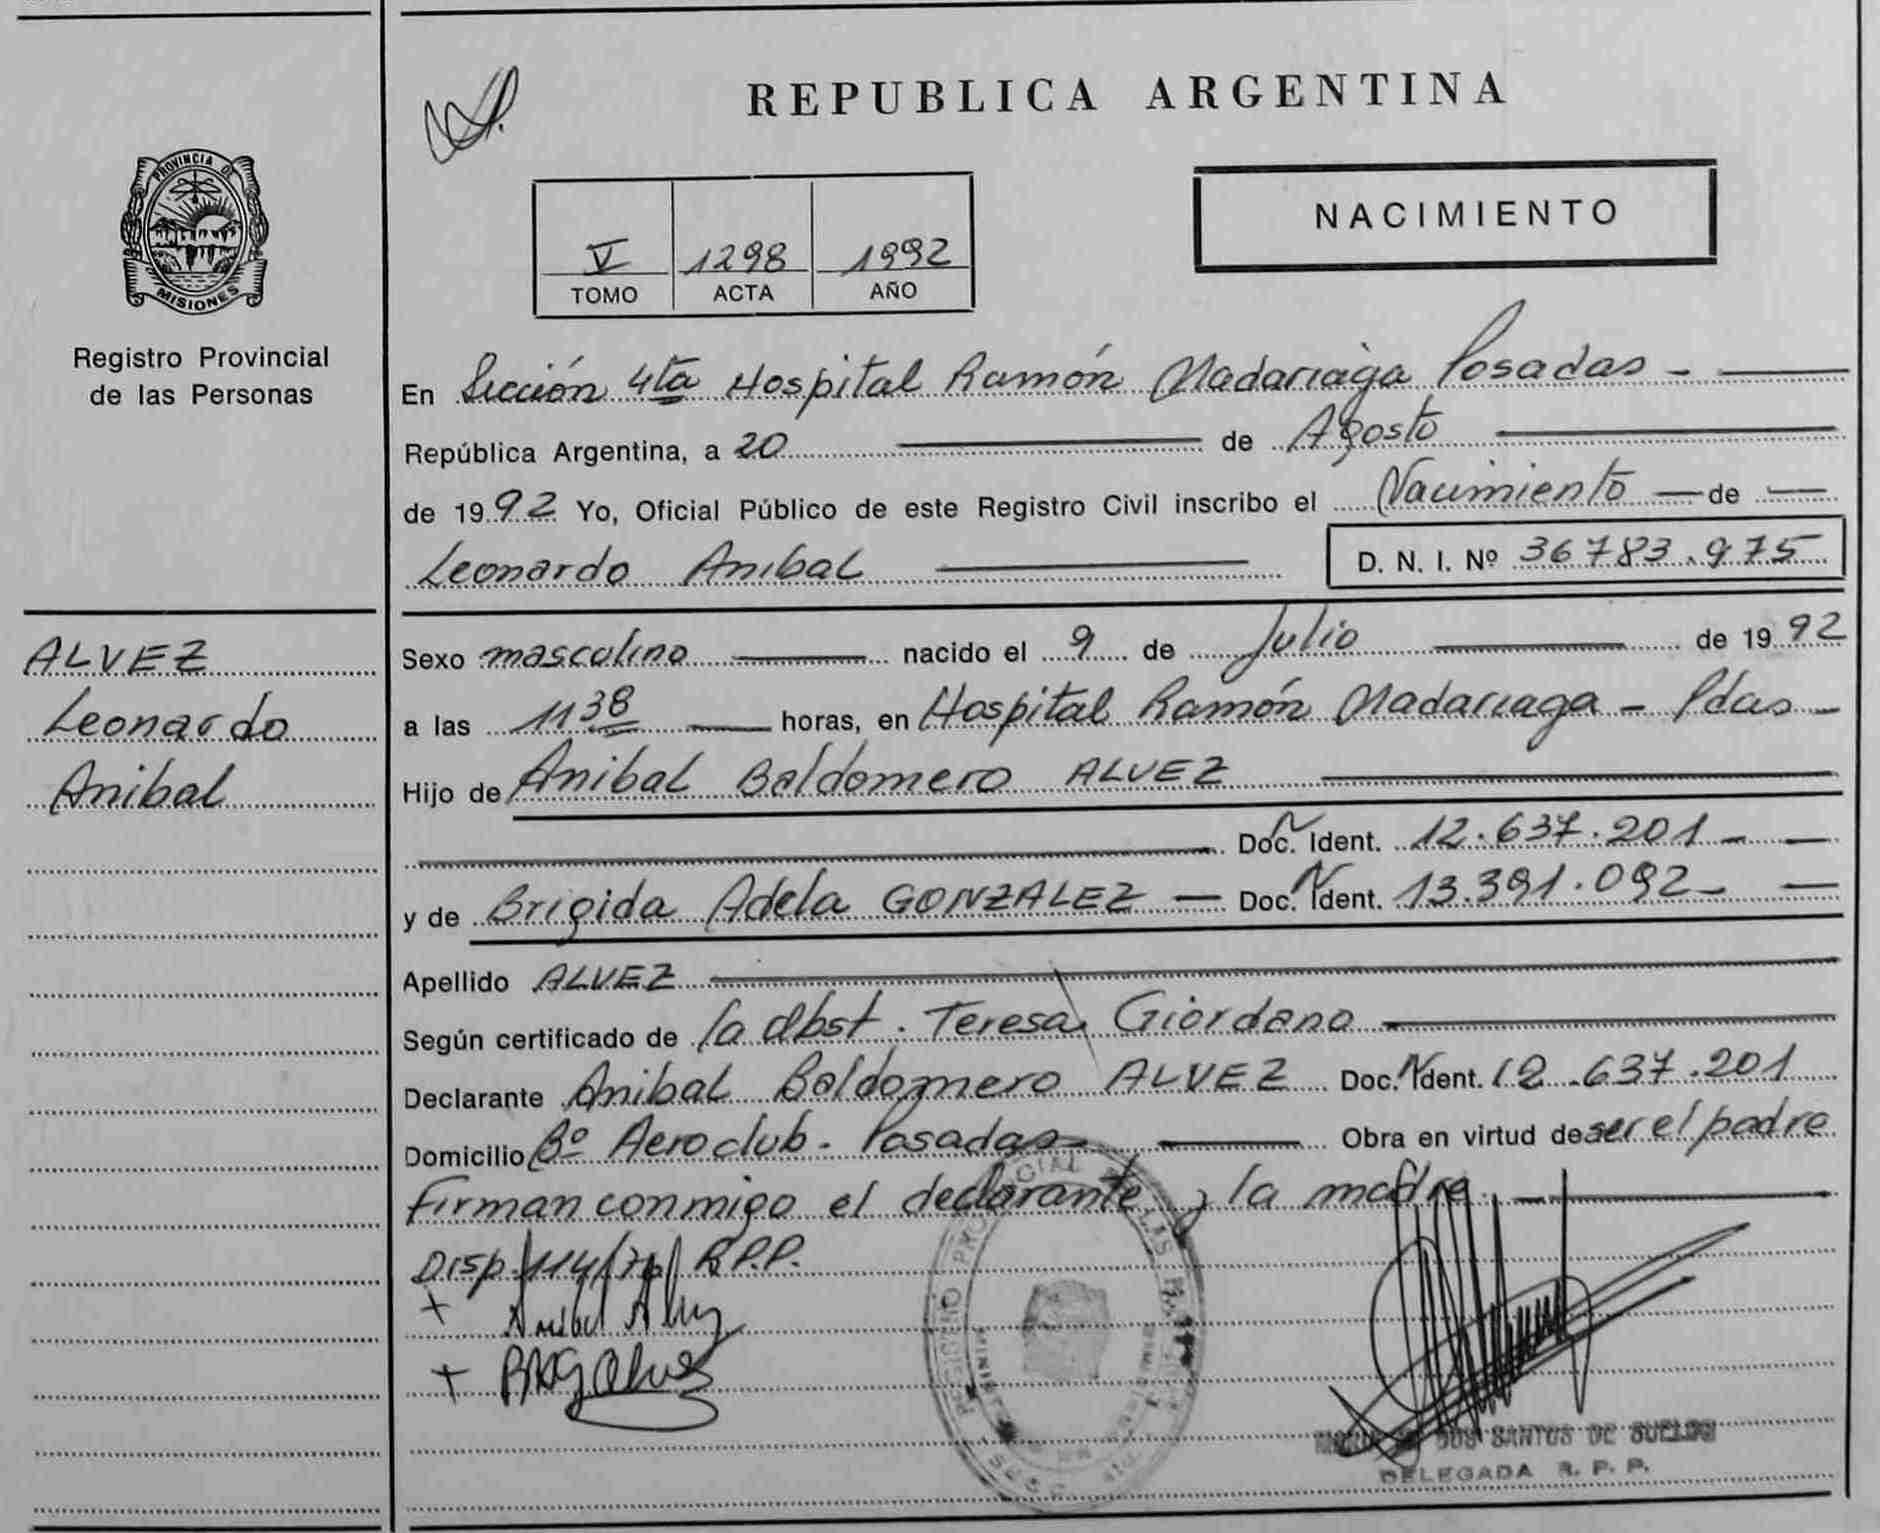 REPUBLICA ARGENTINA
PROVINCIA DE
MISIONES
Registro Provincial
de las Personas
V 1298 1992
TOMO ACTA AÑO
NACIMIENTO
En Sección 4ta Hospital Ramón Madariaga Posadas -
República Argentina, a 20 de Agosto
de 1992 Yo, Oficial Público de este Registro Civil inscribo el Nacimiento de
Leonardo Anibal D. N. I. Nº 36783.975
ALVEZ
Leonardo
Anibal
Sexo masculino nacido el 9 de Julio de 1992
a las 11,38 horas, en Hospital Ramón Madariaga - Pdas -
Hijo de Anibal Baldomero ALVEZ
Doc. Ident. 12.637.201 -
y de Brigida Adela GONZALEZ - Doc. Ident. 13.391.092 -
Apellido ALVEZ
Según certificado de la Obst. Teresa Giordano
Declarante Anibal Baldomero ALVEZ Doc. Ident. 12.637.201
Domicilio Bº Aeroclub - Posadas - Obra en virtud de ser el padre
Firman conmigo el declarante y la madre.
Disp. 114/76 R.P.P.
+ Anibal Alvez
+ BAGAlvez
REGISTRO
DOS SANTOS DE
DELEGADA R. P. P.